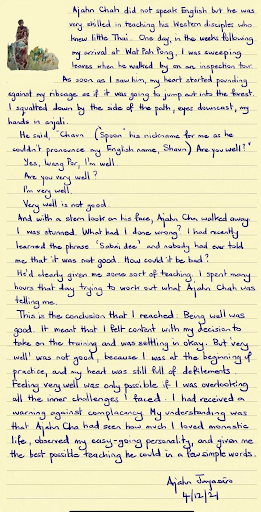 Ajahn Chah did not speak English but he was
very skilled in teaching his Western disciples who
knew little Thai. One day, in the weeks following
my arrival at Wat Pah Pong, I was sweeping
leaves when he walked by on an inspection tour.
As soon as I saw him, my heart started pounding
against my ribcage as if it was going to jump out into the forest.
I squatted down by the side of the path, eyes downcast, my
hands in anjali.
He said, "Chawn ('Spoon' his nickname for me as he
couldn't pronounce my English name, Shaun) Are you well?"
Yes, Luang Por, I'm well.
Are you very well?
I'm very well.
Very well is not good.
And with a stern look on his face, Ajahn Cha walked away.
I was stunned. What had I done wrong? I had recently
learned the phrase 'Sabai dee' and nobody had ever told
me that it was not good. How could it be bad?
He'd clearly given me some sort of teaching. I spent many
hours that day trying to work out what Ajahn Chah was
telling me.
This is the conclusion that I reached: Being well was
good. It meant that I felt content with my decision to
take on the training and was settling in okay. But 'very
well' was not good, because I was at the beginning of
practice, and my heart was still full of defilements.
Feeling very well was only possible if I was overlooking
all the inner challenges I faced. I had received a
warning against complacency. My understanding was
that Ajahn Cha had seen how much I loved monastic
life, observed my easy-going personality, and given me
the best possible teaching he could in a few simple words.
Ajahn Jayasāro
4/12/21